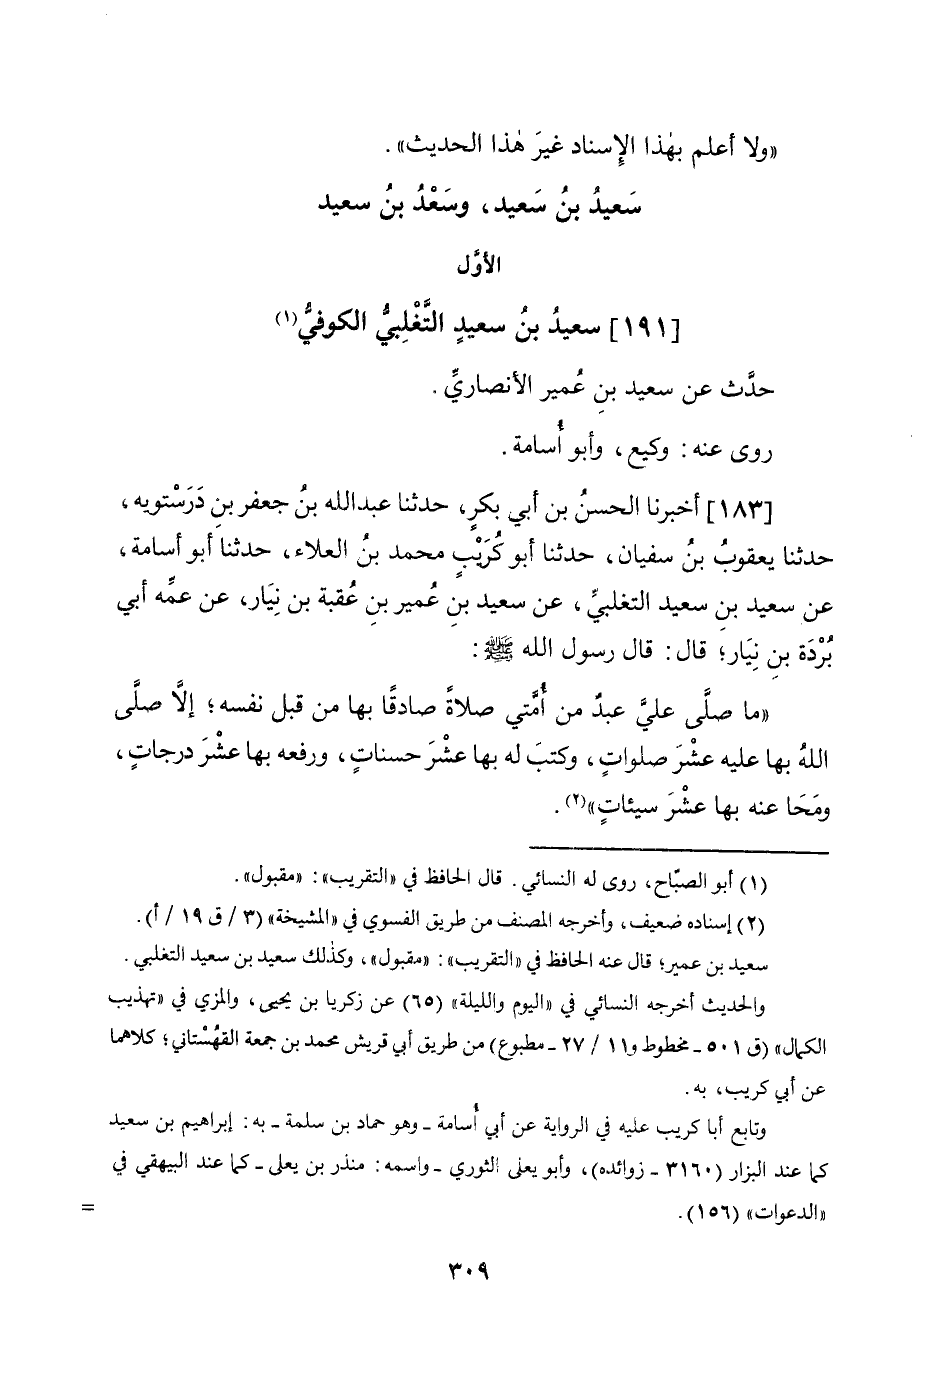 «ولا أعلم بهٰذا الإِسناد غيرَ هٰذا الحديث».
سَعيدُ بنُ سَعيد، وسَعْدُ بنُ سعيد
الأوَّل
[١٩١] سعيدُ بنُ سعيدٍ التَّغْلِبيُّ الكوفيُّ(١)
حدَّث عن سعيد بنِ عُمير الأنصاريِّ.
روى عنه: وكيع، وأبو أُسامة.
[١٨٣] أخبرنا الحسنُ بن أبي بكرٍ، حدثنا عبدالله بنُ جعفر بنِ دَرَسْتويه،
حدثنا يعقوبُ بنُ سفيان، حدثنا أبو كُرَيْبٍ محمد بنُ العلاء، حدثنا أبو أسامة،
عن سعيد بن سعيد التغلبيِّ، عن سعيد بنِ عُمير بنِ عُقبة بن نِيَار، عن عمِّه أبي
بُرْدَة بنِ نِيَار؛ قال: قال رسول الله ﷺ:
«ما صلَّى عليَّ عبدٌ من أُمَّتي صلاةً صادقًا بها من قبل نفسه؛ إلَّا صلَّى
اللهُ بها عليه عشْرَ صلواتٍ، وكتبَ له بها عشْرَ حسناتٍ، ورفعه بها عشْرَ درجاتٍ،
ومَحَا عنه بها عشْرَ سيئاتٍ»(٢).
(١) أبو الصبّاح، روى له النسائي. قال الحافظ في «التقريب»: «مقبول».
(٢) إسناده ضعيف، وأخرجه المصنف من طريق الفسوي في «المشيخة» (٣ / ق ١٩ / أ).
سعيد بن عمير؛ قال عنه الحافظ في «التقريب»: «مقبول»، وكذٰلك سعيد بن سعيد التغلبي.
والحديث أخرجه النسائي في «اليوم والليلة» (٦٥) عن زكريا بن يحيى، والمزي في «تهذيب
الكمال» (ق ٥٠١ ـ مخطوط و١١ / ٢٧ ـ مطبوع) من طريق أبي قريش محمد بن جمعة القهُسْتاني؛ كلاهما
عن أبي كريب، به.
وتابع أبا كريب عليه في الرواية عن أبي أُسامة ـ وهو حماد بن سلمة ـ به: إبراهيم بن سعيد
كما عند البزار (٣١٦٠ ـ زوائده)، وأبو يعلى الثوري ـ واسمه: منذر بن يعلى ـ كما عند البيهقي في
«الدعوات» (١٥٦).
=
٣٠٩